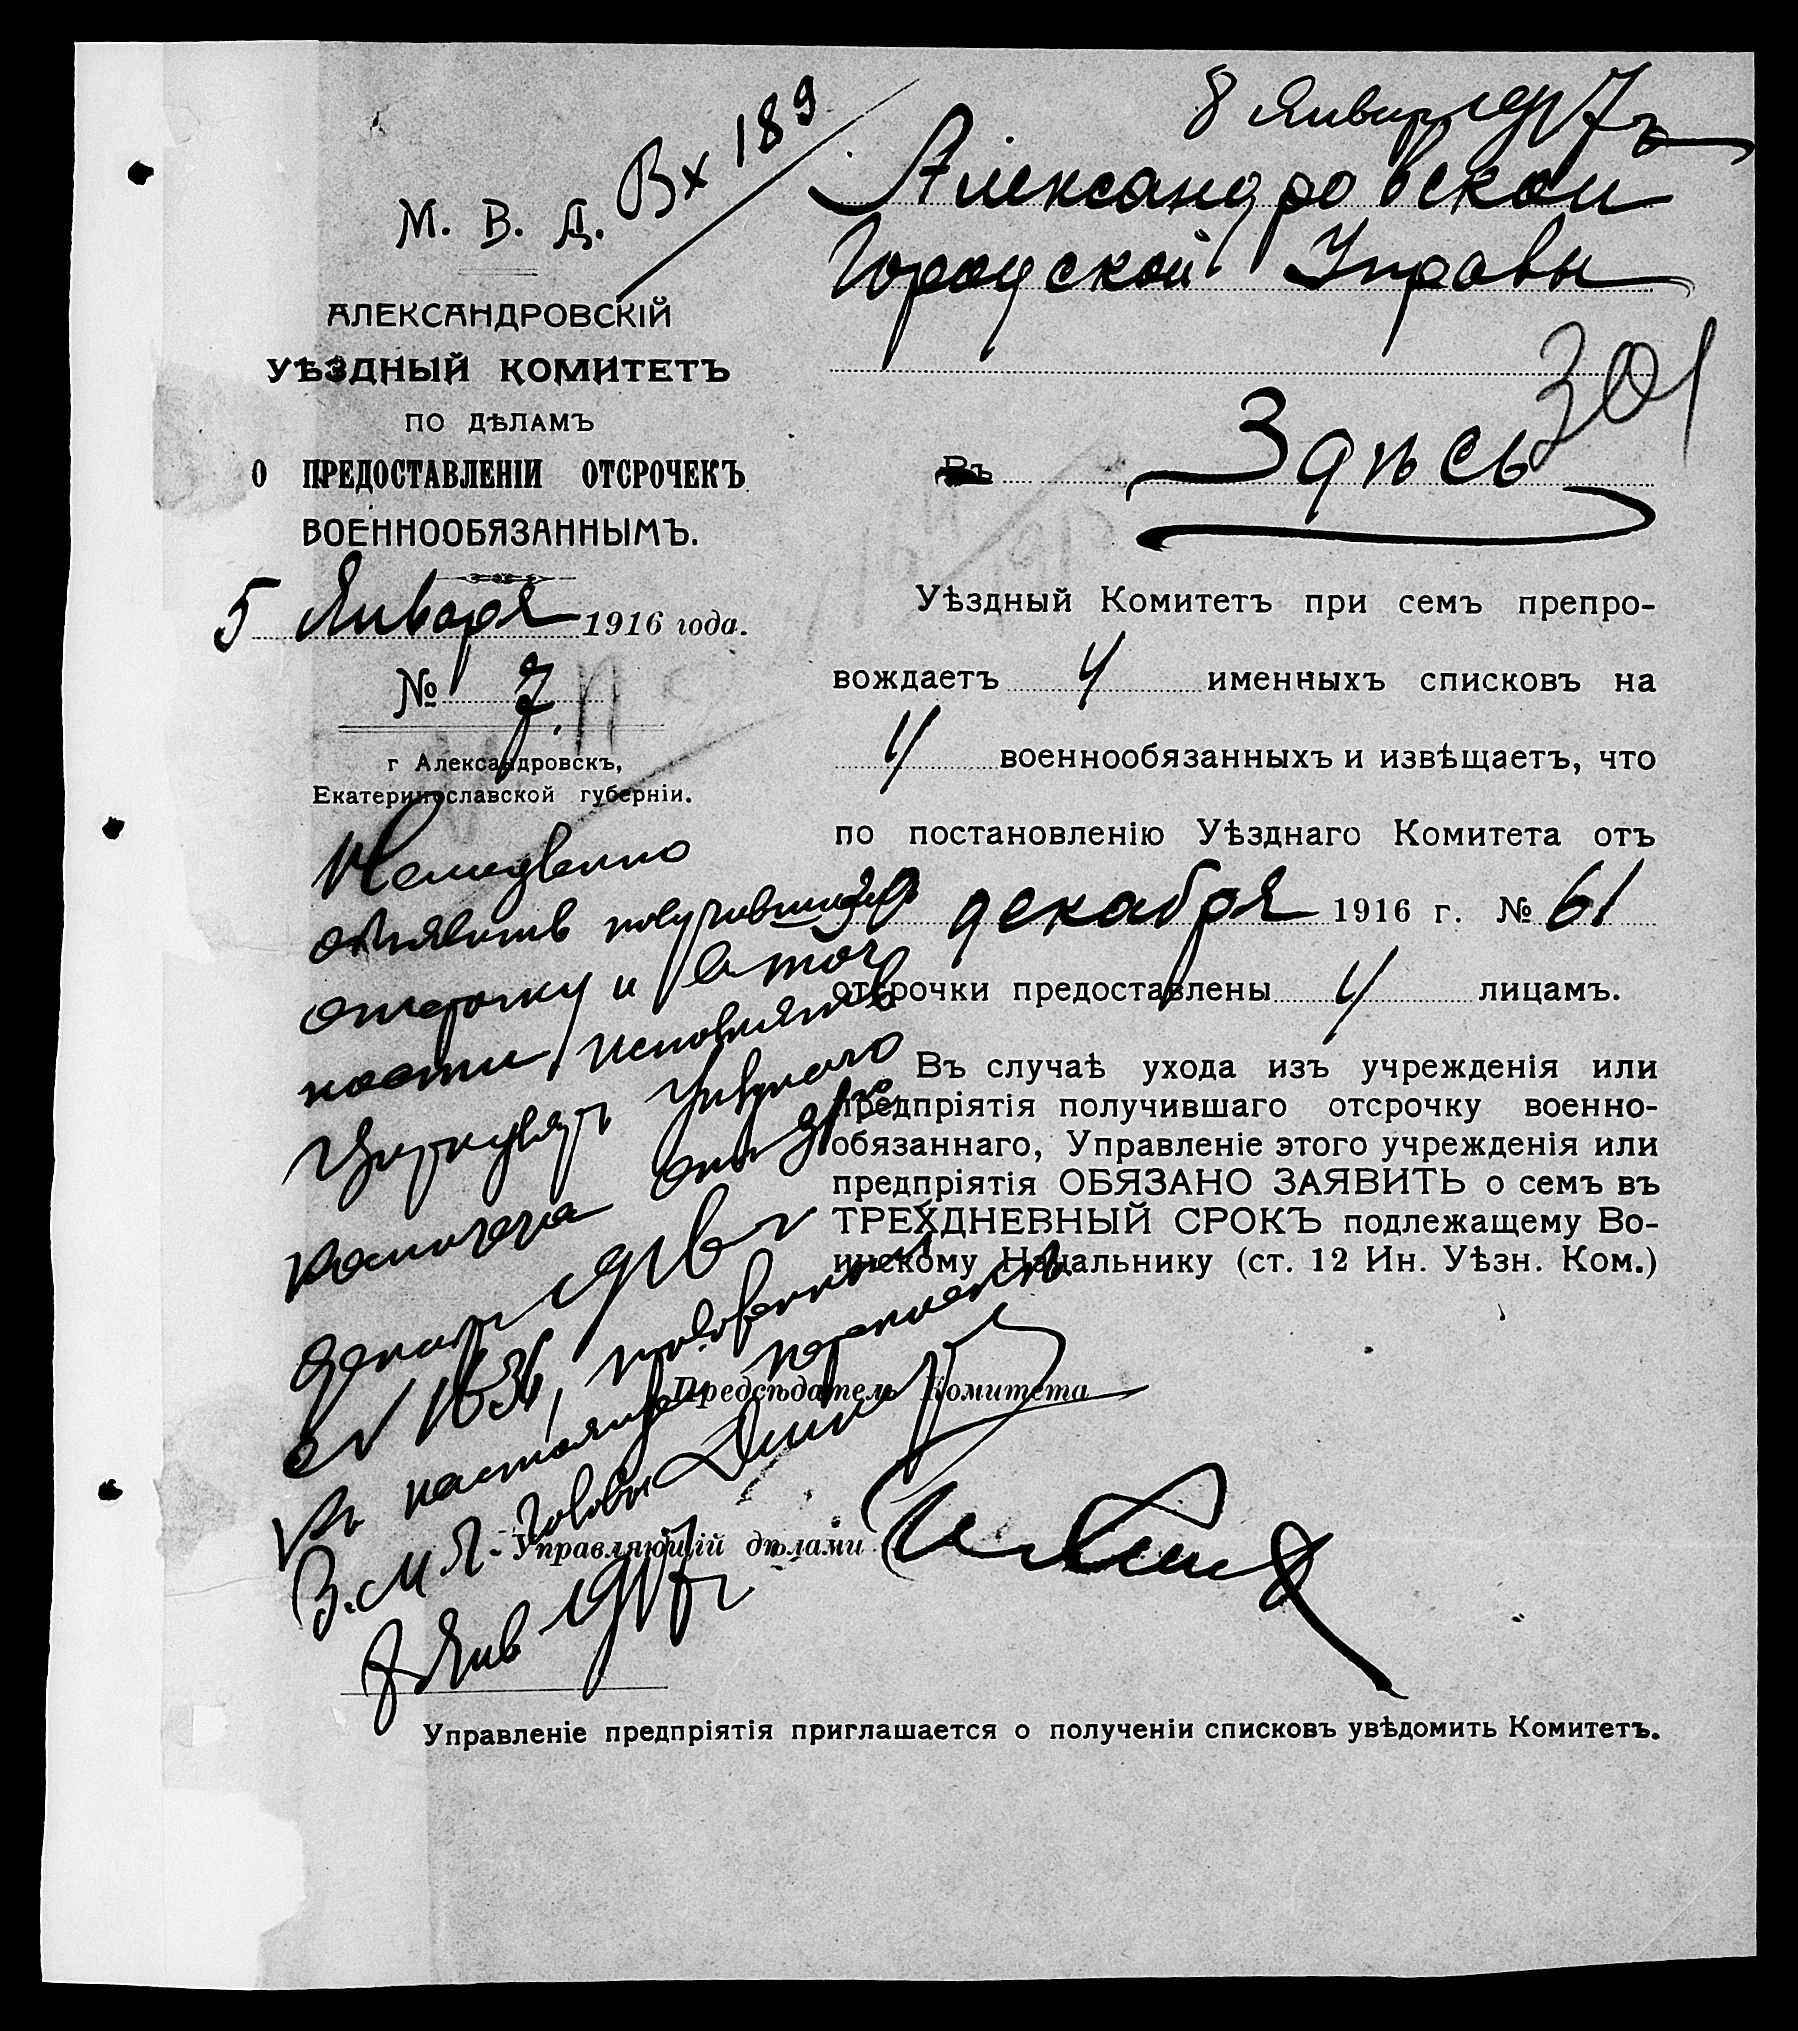 8 Января 1917 г.
Вх 189
М. В. Д.
АЛЕКСАНДРОВСКІЙ
УѢЗДНЫЙ КОМИТЕТЪ
ПО ДѢЛАМЪ
О ПРЕДОСТАВЛЕНІИ ОТСРОЧЕКЪ
ВОЕННООБЯЗАННЫМЪ.
5 Января 1916 года.
№ 7.
г Александровскъ,
Екатеринославской губерніи.
Александровской
Городской Управы
301
Въ Здѣсь
Уѣздный Комитетъ при семъ препро-
вождаетъ 4 именныхъ списковъ на
4 военнообязанныхъ и извѣщаетъ, что
по постановленію Уѣзднаго Комитета отъ
30 декабря 1916 г. № 61
отсрочки предоставлены 4 лицамъ.
Въ случаѣ ухода изъ учрежденія или
предпріятія получившаго отсрочку военно-
обязаннаго, Управленіе этого учрежденія или
предпріятія ОБЯЗАНО ЗАЯВИТЬ о семъ въ
ТРЕХДНЕВНЫЙ СРОКЪ подлежащему Во-
инскому Начальнику (ст. 12 Ин. Уѣзн. Ком.)
Предсѣдатель Комитета
Управляющій дѣлами
Немедленно
отсрочку и въ точ
ности исполнять
циркуляръ Уѣзднаго
Комитета
въ настоящее
8 Янв 1917 г
Управленіе предпріятія приглашается о полученіи списковъ увѣдомить Комитетъ.